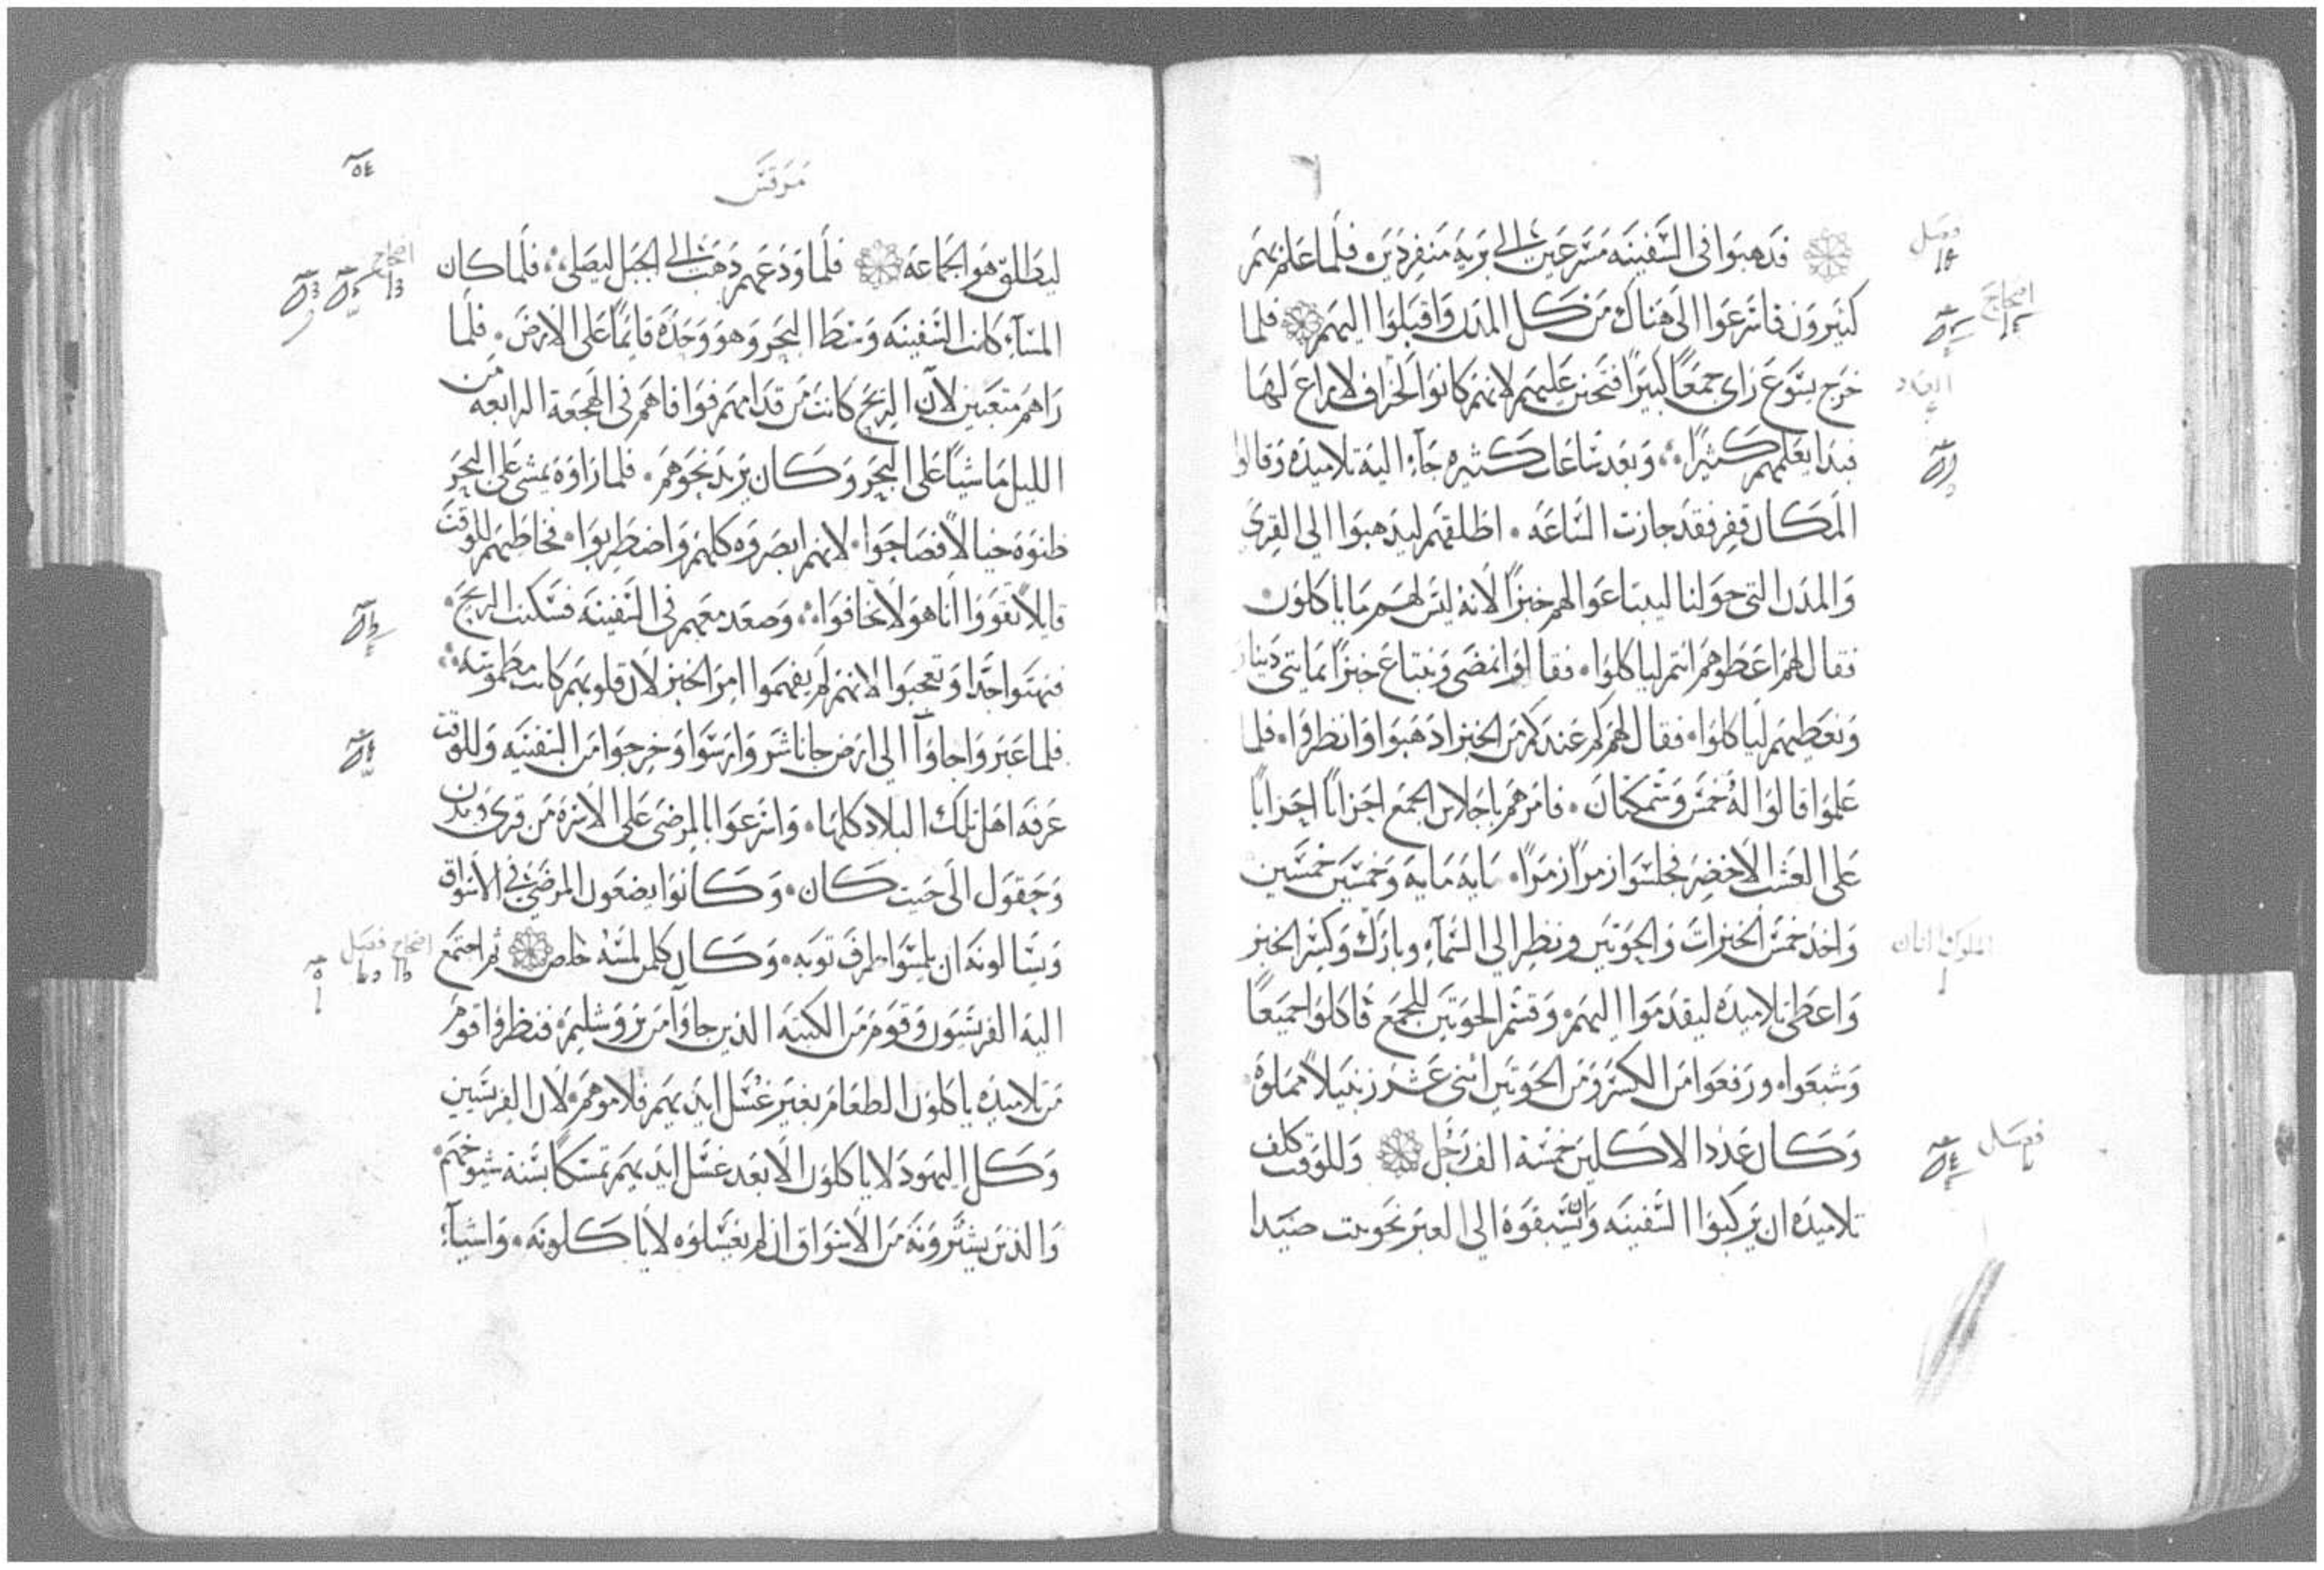 فذهبوا في السفينه مسرعين الي بريه منفردين فلما علم بهم
كثيرون فاسرعوا الى هناك من كل المدن واقبلوا اليهم فلما
خرج يسوع راى جمعًا كبيرًا فتحنن عليهم لانهم كانوا كخراف لا راع لها
فبدا يعلمهم كثيرًا وبعد ساعات كثيره جاء اليه تلاميذه وقالوا
المكان قفر فقد جازت الساعه اطلقهم ليذهبوا الي القرى
والمدن التي حولنا ليبتاعوا لهم خبزًا لانه ليس لهم ما ياكلون
فقال لهم اعطوهم انتم لياكلوا فقالوا نمضى ونبتاع خبزًا بمايتى دينار
ونعطيهم لياكلوا فقال لهم كم عندكم من الخبز اذهبوا وانظروا فلما
علموا قالوا له خمس وسمكتان فامرهم باجلاس الجمع احزابًا احزابًا
على العشب الاخضر فجلسوا زمرًا زمرًا مايه مايه وخمسين خمسين
واخذ خمس الخبزات والحوتين ونظر الي السماء وبارك وكسر الخبز
واعطى تلاميذه ليقدموا اليهم وقسم الحوتين للجمع فاكلوا جميعًا
وشبعوا ورفعوا من الكسر ومن الحوتين اثنى عشر زنبيلاً مملوه
وكان عدد الاكلين خمسة الف رجل وللوقت كلف
تلاميذه ان يركبوا السفينه وان يسبقوه الي العبر نحو بيت صيدا
فصل
اصحاح
العدد
فصل
مرقس
٥٤
ليطلق هو الجماعه فلما ودعهم ذهب الي الجبل ليصلى فلما كان
المساء كانت السفينه وسط البحر وهو وحده قايمًا على الارض فلما
راهم متعبين لان الريح كانت من قدامهم فوافاهم في الهجعة الرابعه من
الليل ماشيًا على البحر وكان يريد نحوهم فلما راوه يمشى على البحر
ظنوه خيالاً فصاحوا لانهم ابصروه كلهم واضطربوا فخاطبهم للوقت
قايلاً تقووا انا هو لا تخافوا وصعد معهم في السفينه فسكنت الريح
فبهتوا جدًا وتعجبوا لانهم لم يفهموا امر الخبز لان قلوبهم كانت مطموسه
فلما عبروا جاوآ الي ارض جاناشر وارسوا وخرجوا من السفينه وللوقت
عرفه اهل تلك البلاد كلها واسرعوا بالمرضى على الاسره من قرى ومدن
وحقول الى حيت كان وكانوا يضعون المرضى في الاسواق
ويسالونه ان يلمسوا طرف ثوبه وكان كلمن لمسه خلص ثم اجتمع
اليه الفريسيون وقوم من الكتبه الذين جاوآ من يروشليم فنظروا قوم
من تلاميذه ياكلون الطعام بغير غسل ايديهم فلاموهم لان الفريسيين
وكل اليهود لا ياكلون الا بعد غسل ايديهم تمسكًا بسنة شيوخهم
والذين يشترونه من الاسواق ان لم يغسلوه لا ياكلونه واشياء
اصحاح
اصحاح فصل